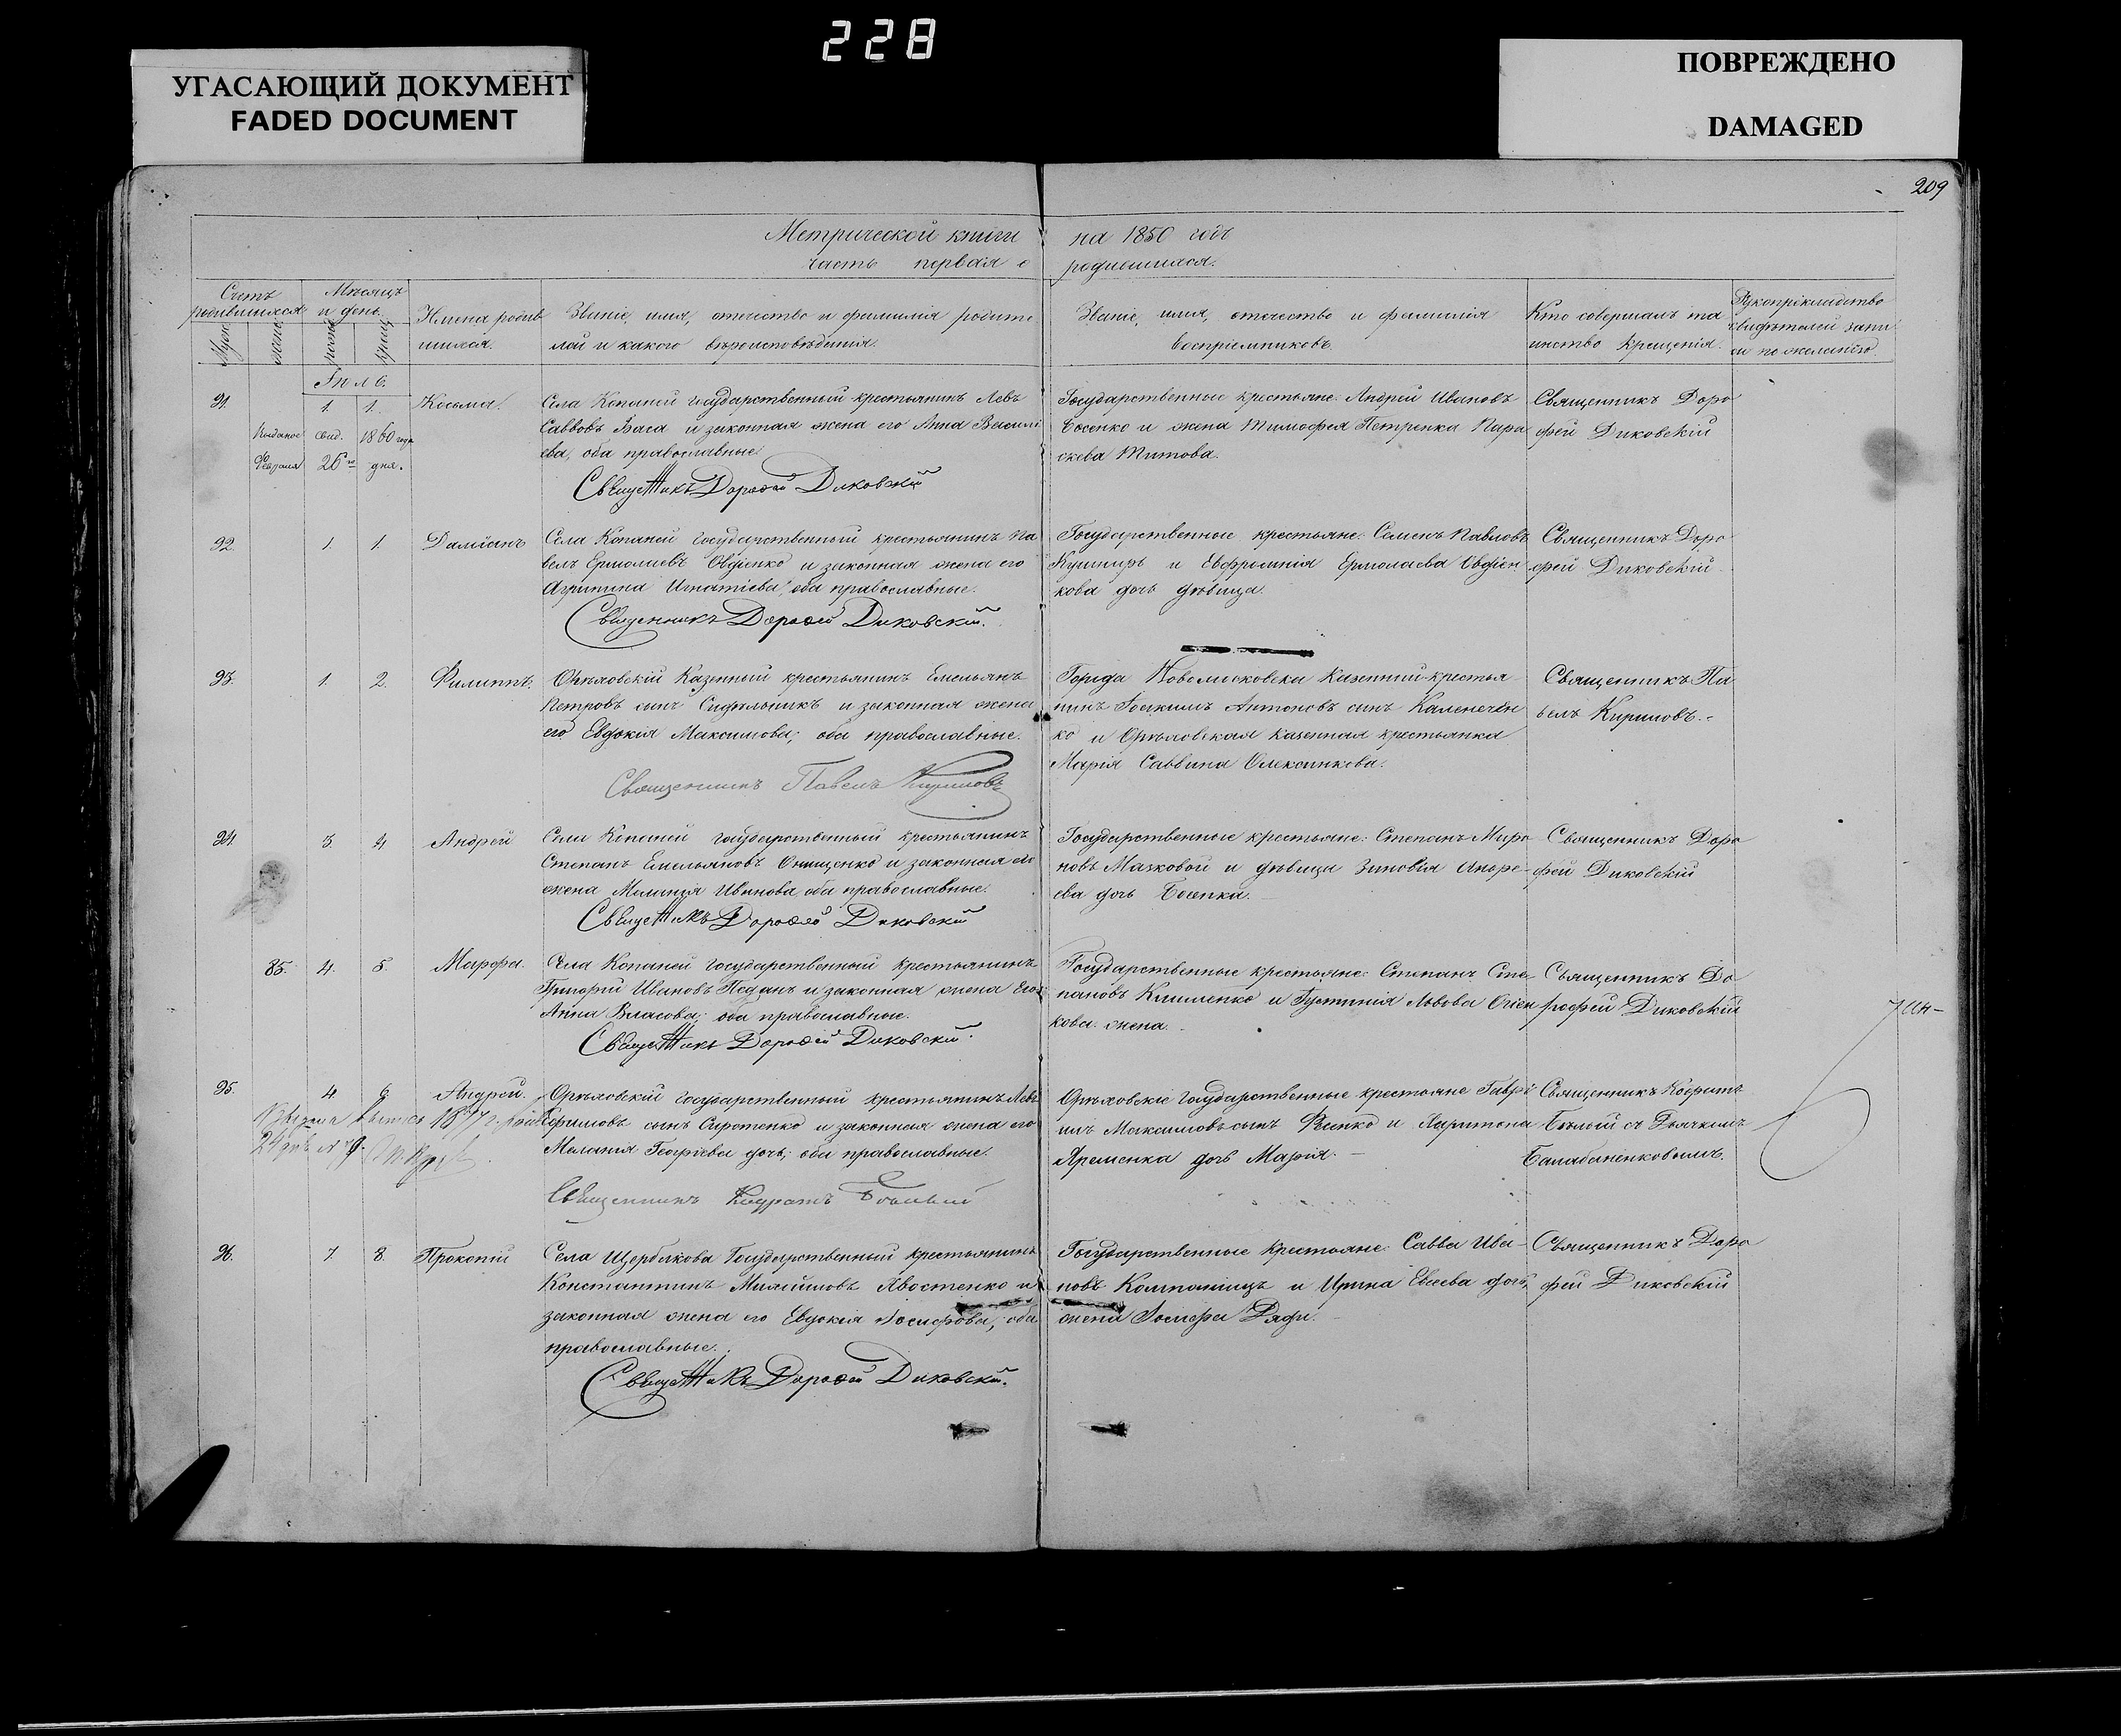 228
УГАСАЮЩИЙ ДОКУМЕНТ
FADED DOCUMENT
ПОВРЕЖДЕНО
DAMAGED
209
Метрической книги на 1850 годъ
часть первая о родившихся.
Счетъ родившихся
Муж. жен.
Мѣсяцъ и день.
рожд. крещ.
Имена родив
шихся.
Званіе, имя, отечество и фамилія родите
лей и какого вѣроисповѣданія.
Званіе, имя, отечество и фамилія
воспріемниковъ.
Кто совершалъ та
инство крещенія.
Рукоприкладство
свидѣтелей запи
си по желанію.
Іюль.
91. 1. 1. Косьма.
Выдано свид. 1860 года
Февраля 26го дня.
Села Копаней государственный крестьянинъ Левъ
Саввовъ Баса и законная жена его Анна Василі
ева, оба православные.
Священникъ Дорофей Диковскій
Государственные крестьяне: Андрей Ивановъ
Босенко и жена Тимофея Петренка Пара
скева Титова.
Священникъ Доро
фей Диковскій
92. 1. 1. Даміанъ
Села Копаней государственный крестьянинъ Па
велъ Ермолаевъ Овдіенко и законная жена его
Агрипина Игнатіева, оба православные.
Священникъ Дорофей Диковскій.
Государственные крестьяне: Семенъ Павловъ
Кушниръ и Евфросинія Ермолаева Овдіен
кова дочь дѣвица.
Священникъ Доро
фей Диковскій
93. 1. 2. Филиппъ.
Орѣховскій Казенный крестьянинъ Емельянъ
Петровъ сынъ Сидѣльникъ и законная жена
его Евдокія Максимова; оба православные.
Священникъ Павелъ Кириловъ
Города Новомосковска Казенный крестья
нинъ Іоакимъ Антоновъ сынъ Каленичен
ко и Орѣховская казенная крестьянка
Марія Саввина Олексинкова.
Священникъ Па
велъ Кириловъ.
94. 3. 4. Андрей
Села Копаней государственный крестьянинъ
Степанъ Емельяновъ Онищенко и законная его
жена Меланія Иванова, оба православные.
Священникъ Дорофей Диковскій
Государственные крестьяне: Степанъ Миро
новъ Мазковой и дѣвица Зиновія Андре
ева дочь Босенка.
Священникъ Доро
фей Диковскій
85. 4. 5. Марфа.
Села Копаней государственный крестьянинъ
Григорій Ивановъ Педанъ и законная жена Его
Анна Власова; оба православные.
Священникъ Дорофей Диковскій.
Государственные крестьяне: Степанъ Сте
пановъ Клименко и Іустинія Львова
кова жена.
Священникъ До
рофей Диковскій
95. 4. 6. Андрей.
1877 г.
Орѣховскій государственный крестьянинъ Левъ
Ефимовъ сынъ Сиротенко и законная жена его
Меланія Георгіева дочь; оба православные.
Священникъ Кодратъ Бѣлый
Орѣховскіе государственные крестьяне Гаврі
илъ Максимовъ сынъ и Харитона
Яременка дочь Марія.
Священникъ Кодратъ
Бѣлый съ Дьячкомъ
Балабаненковымъ.
96. 7. 8. Прокопій
Села Щербакова Государственный крестьянинъ
Константинъ Хвостенко и
законная жена его Евдокія Іосифова, оба
православные.
Священникъ Дорофей Диковскій.
Государственные крестьяне: Савва Ива
новъ Компаніецъ и Ирина Евсеева дочь,
жена Іосифа Ряди.
Священникъ Доро
фей Диковскій